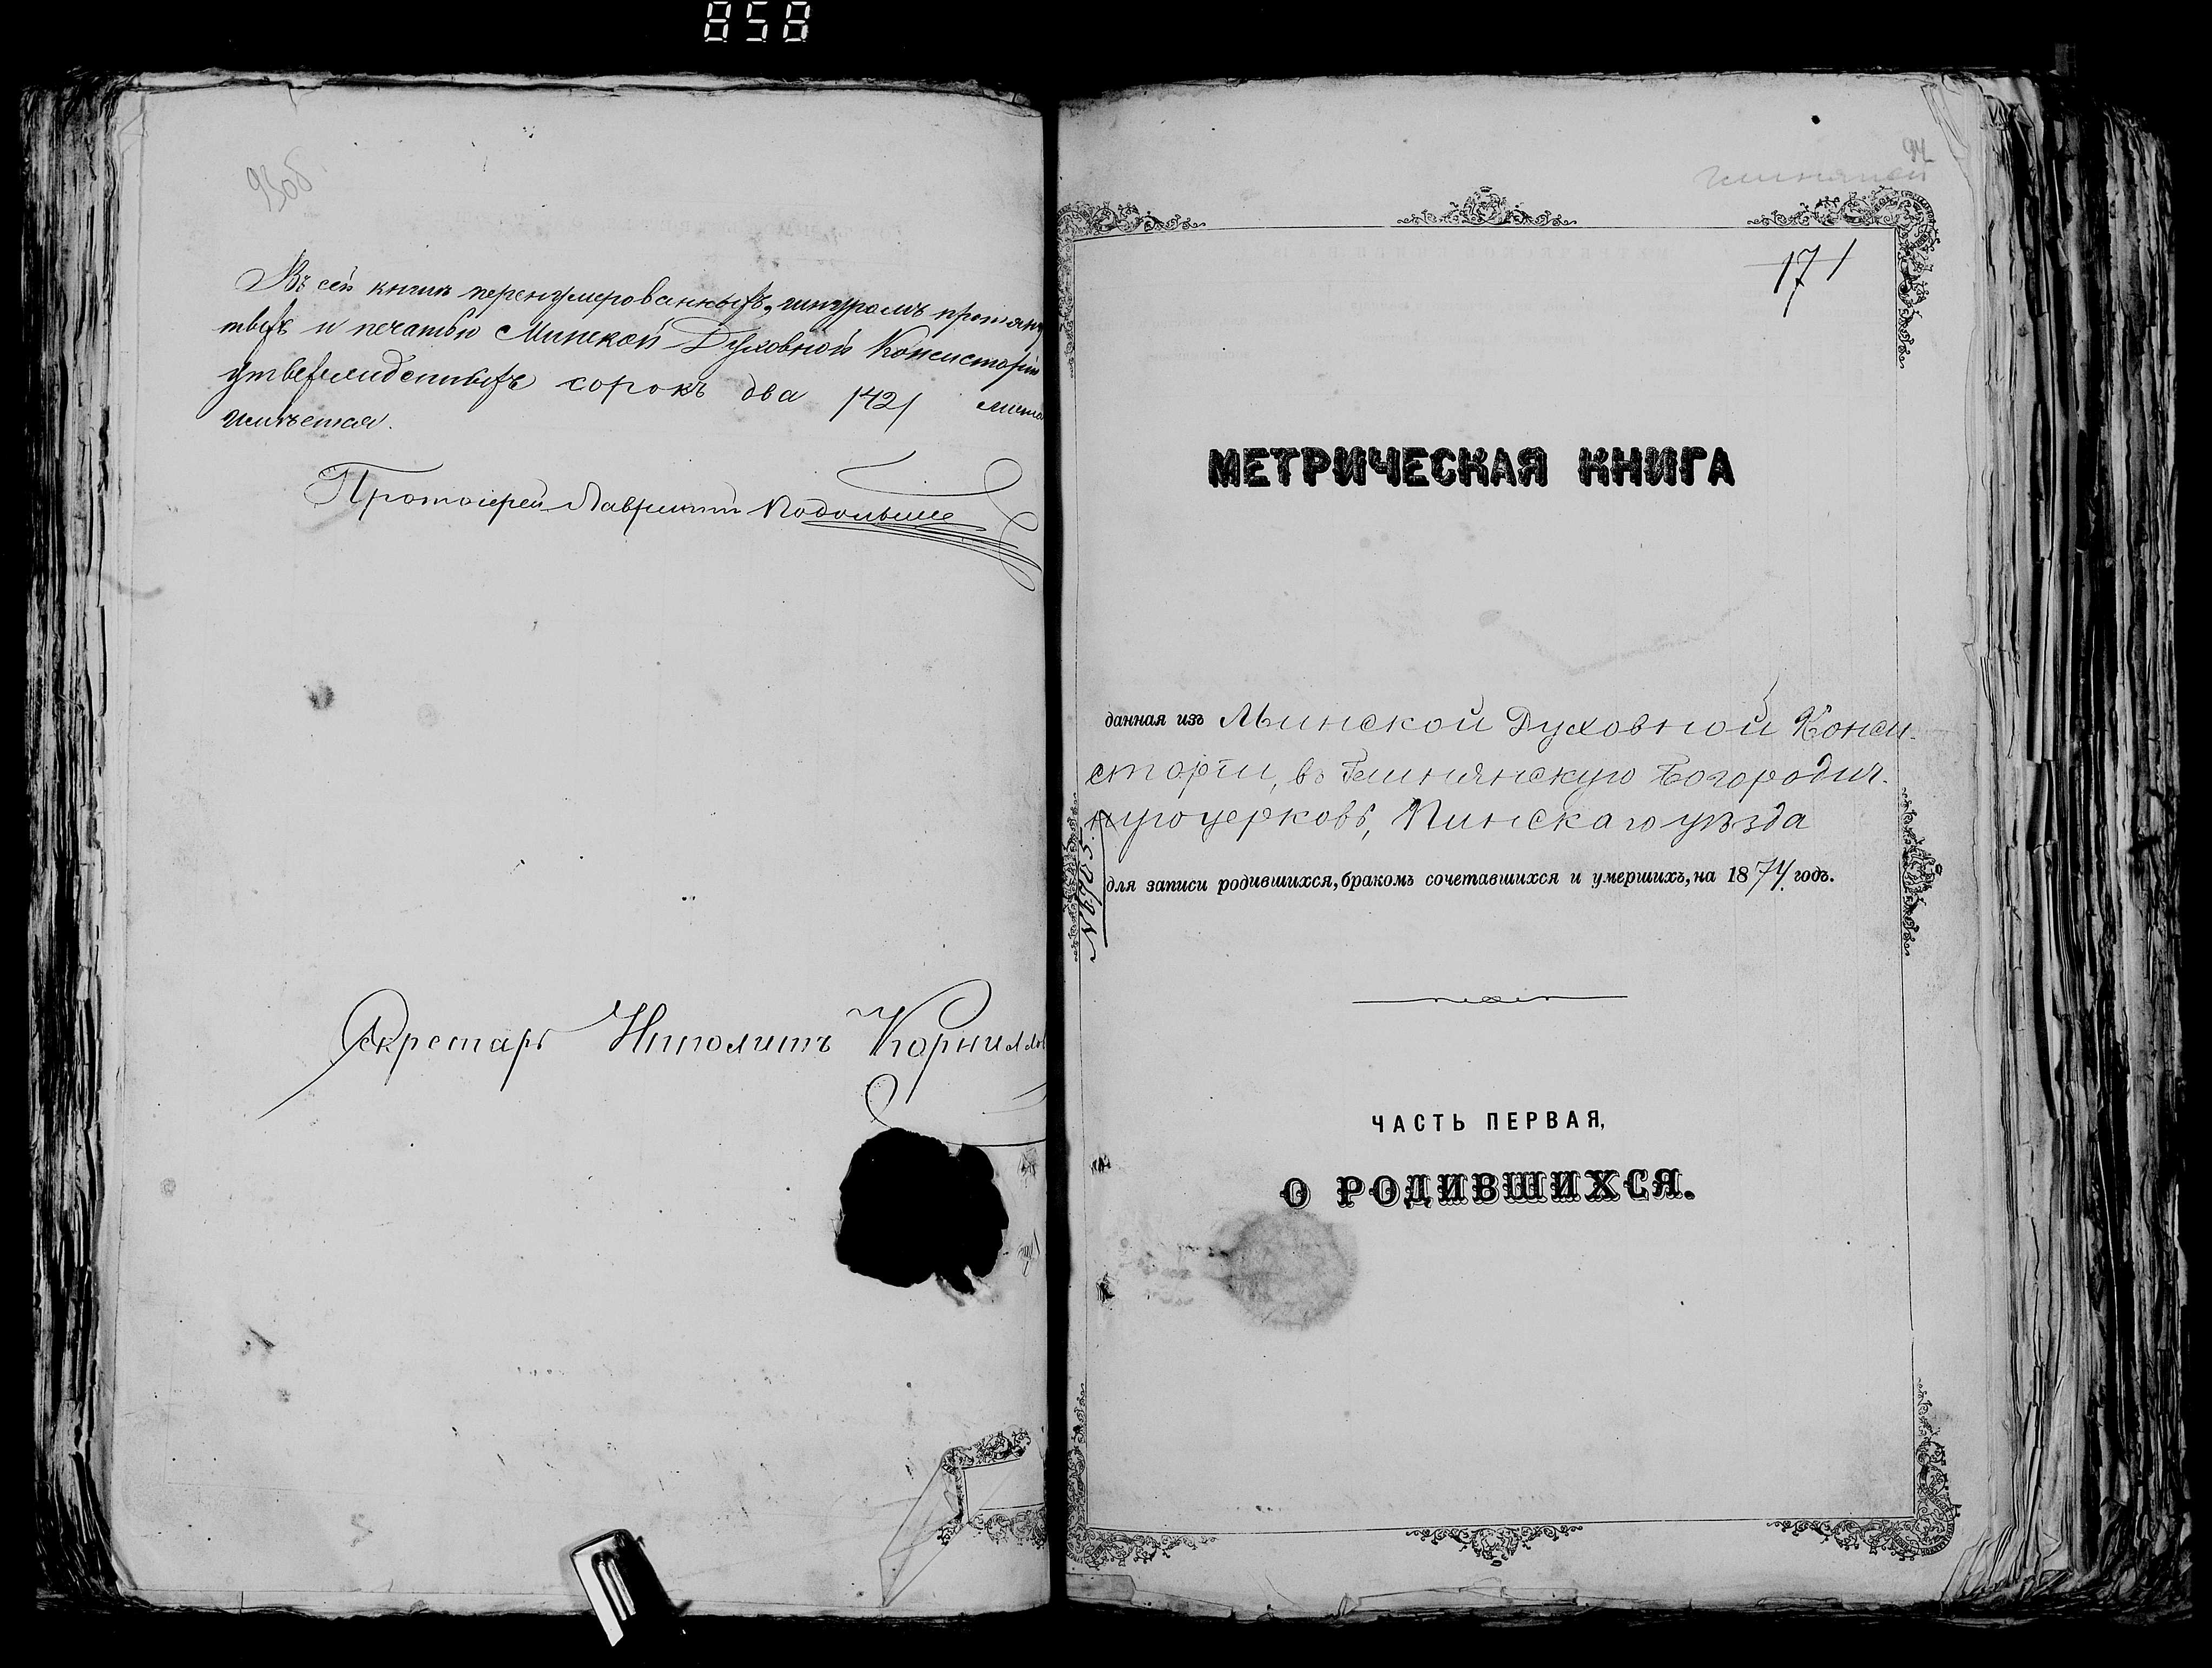 858
93об
Въ сей книгѣ перенумерованныхъ, шнуромъ протяну
тыхъ и печатью Минской Духовной Консисторіи
утвержденныхъ сорокъ два /42/ листа
имѣется.
Протоіерей Лаврентій
Секретарь Ипполитъ Корнил
94
171
МЕТРИЧЕСКАЯ КНИГА
данная изъ Минской Духовной Конси-
сторіи, въ Глинянскую Богородич-
ную церковь, Пинскаго уѣзда
№ 4705
для записи родившихся, бракомъ сочетавшихся и умершихъ, на 1874 годъ.
ЧАСТЬ ПЕРВАЯ,
О РОДИВШИХСЯ.